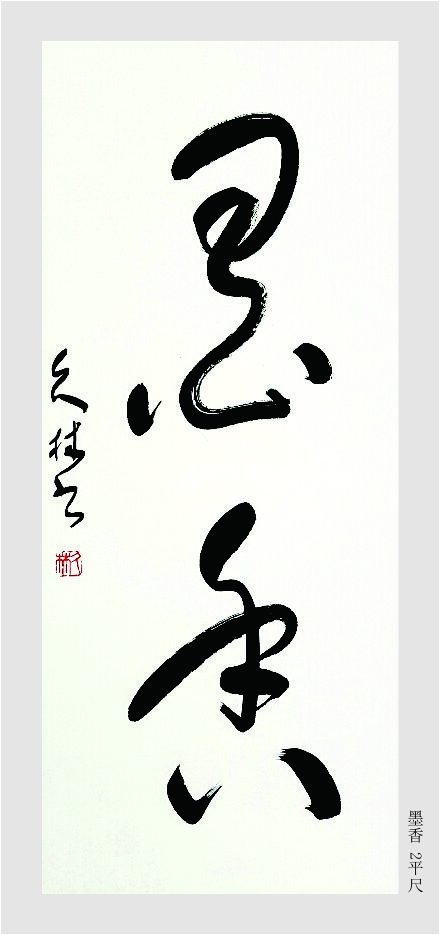 墨香
久林书
墨香 2平尺